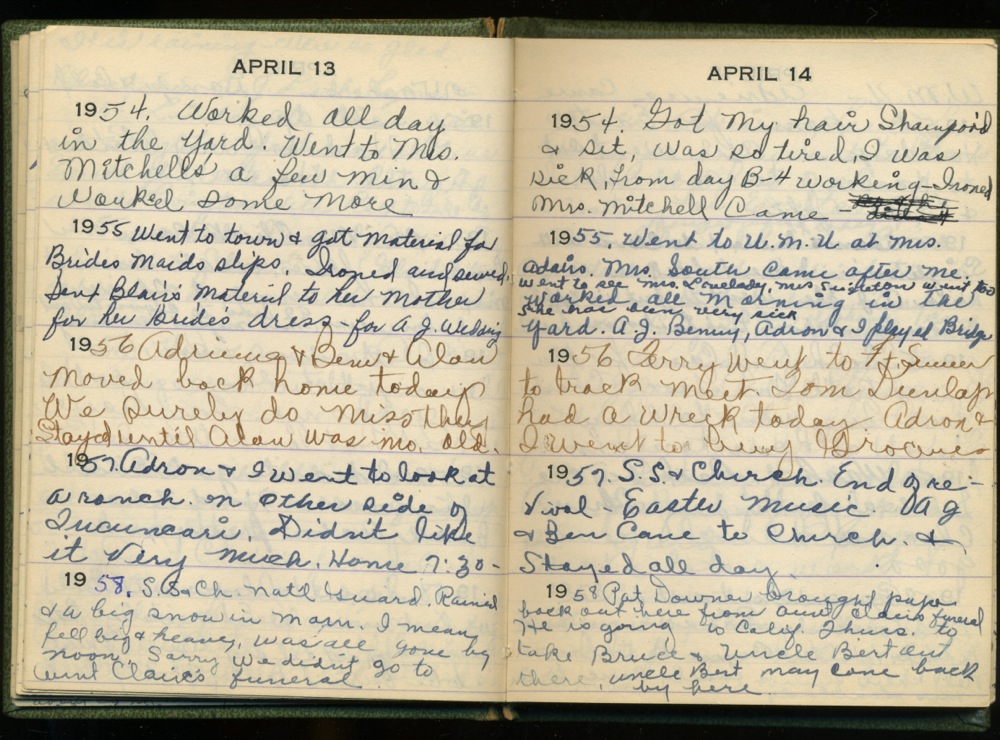 APRIL 13
1954. Worked all day
in the Yard. Went to Mrs.
Mitchell's a few min &
Worked some more
1955 Went to town & got material for
Brides maids slips. Ironed and sewed.
Sent Blair's material to her mother
for her Bride's dress - for A J. Wedding
1956 & Ben & Alan
moved back home today
We surely do miss them
Stayed until Alan was mo. old.
1957. Adron & I went to look at
a ranch on other side of
Tucumcari. Didn't like
it very much. Home 7:30-
1958. S.S & Ch. Nat'l Guard. Rained
& a big snow in morn. I mean
fell big & heavy, was all gone by
noon. Sorry we didn't go to
Aunt Claire's funeral.
APRIL 14
1954. Got my hair Shampoo'd
& set, was so tired, I was
sick, from day B-4 working - Ironed
Mrs. Mitchell Came -
1955. Went to U. M. U at Mrs.
Adairs. Mrs. South came after me.
Went to see Mrs. Lovelady, Mrs. went too
She has been very sick
Worked all morning in the
yard. A.J. Benny, Adron & I played Bridge
1956 Terry went to Ft. Sumner
to track meet. Tom Dunlap
had a wreck today. Adron &
I went to buy Groceries
1957. S.S. & Church. End of re-
vival - Easter Music. A J
& Ben Came to Church. &
Stayed all day.
1958 Pat Downer brought papa
back out here from Aunt Claire's funeral
He is going to Calif. Thurs. to
take Bruce & Uncle Bert out
there, uncle Bert may come back
by here.